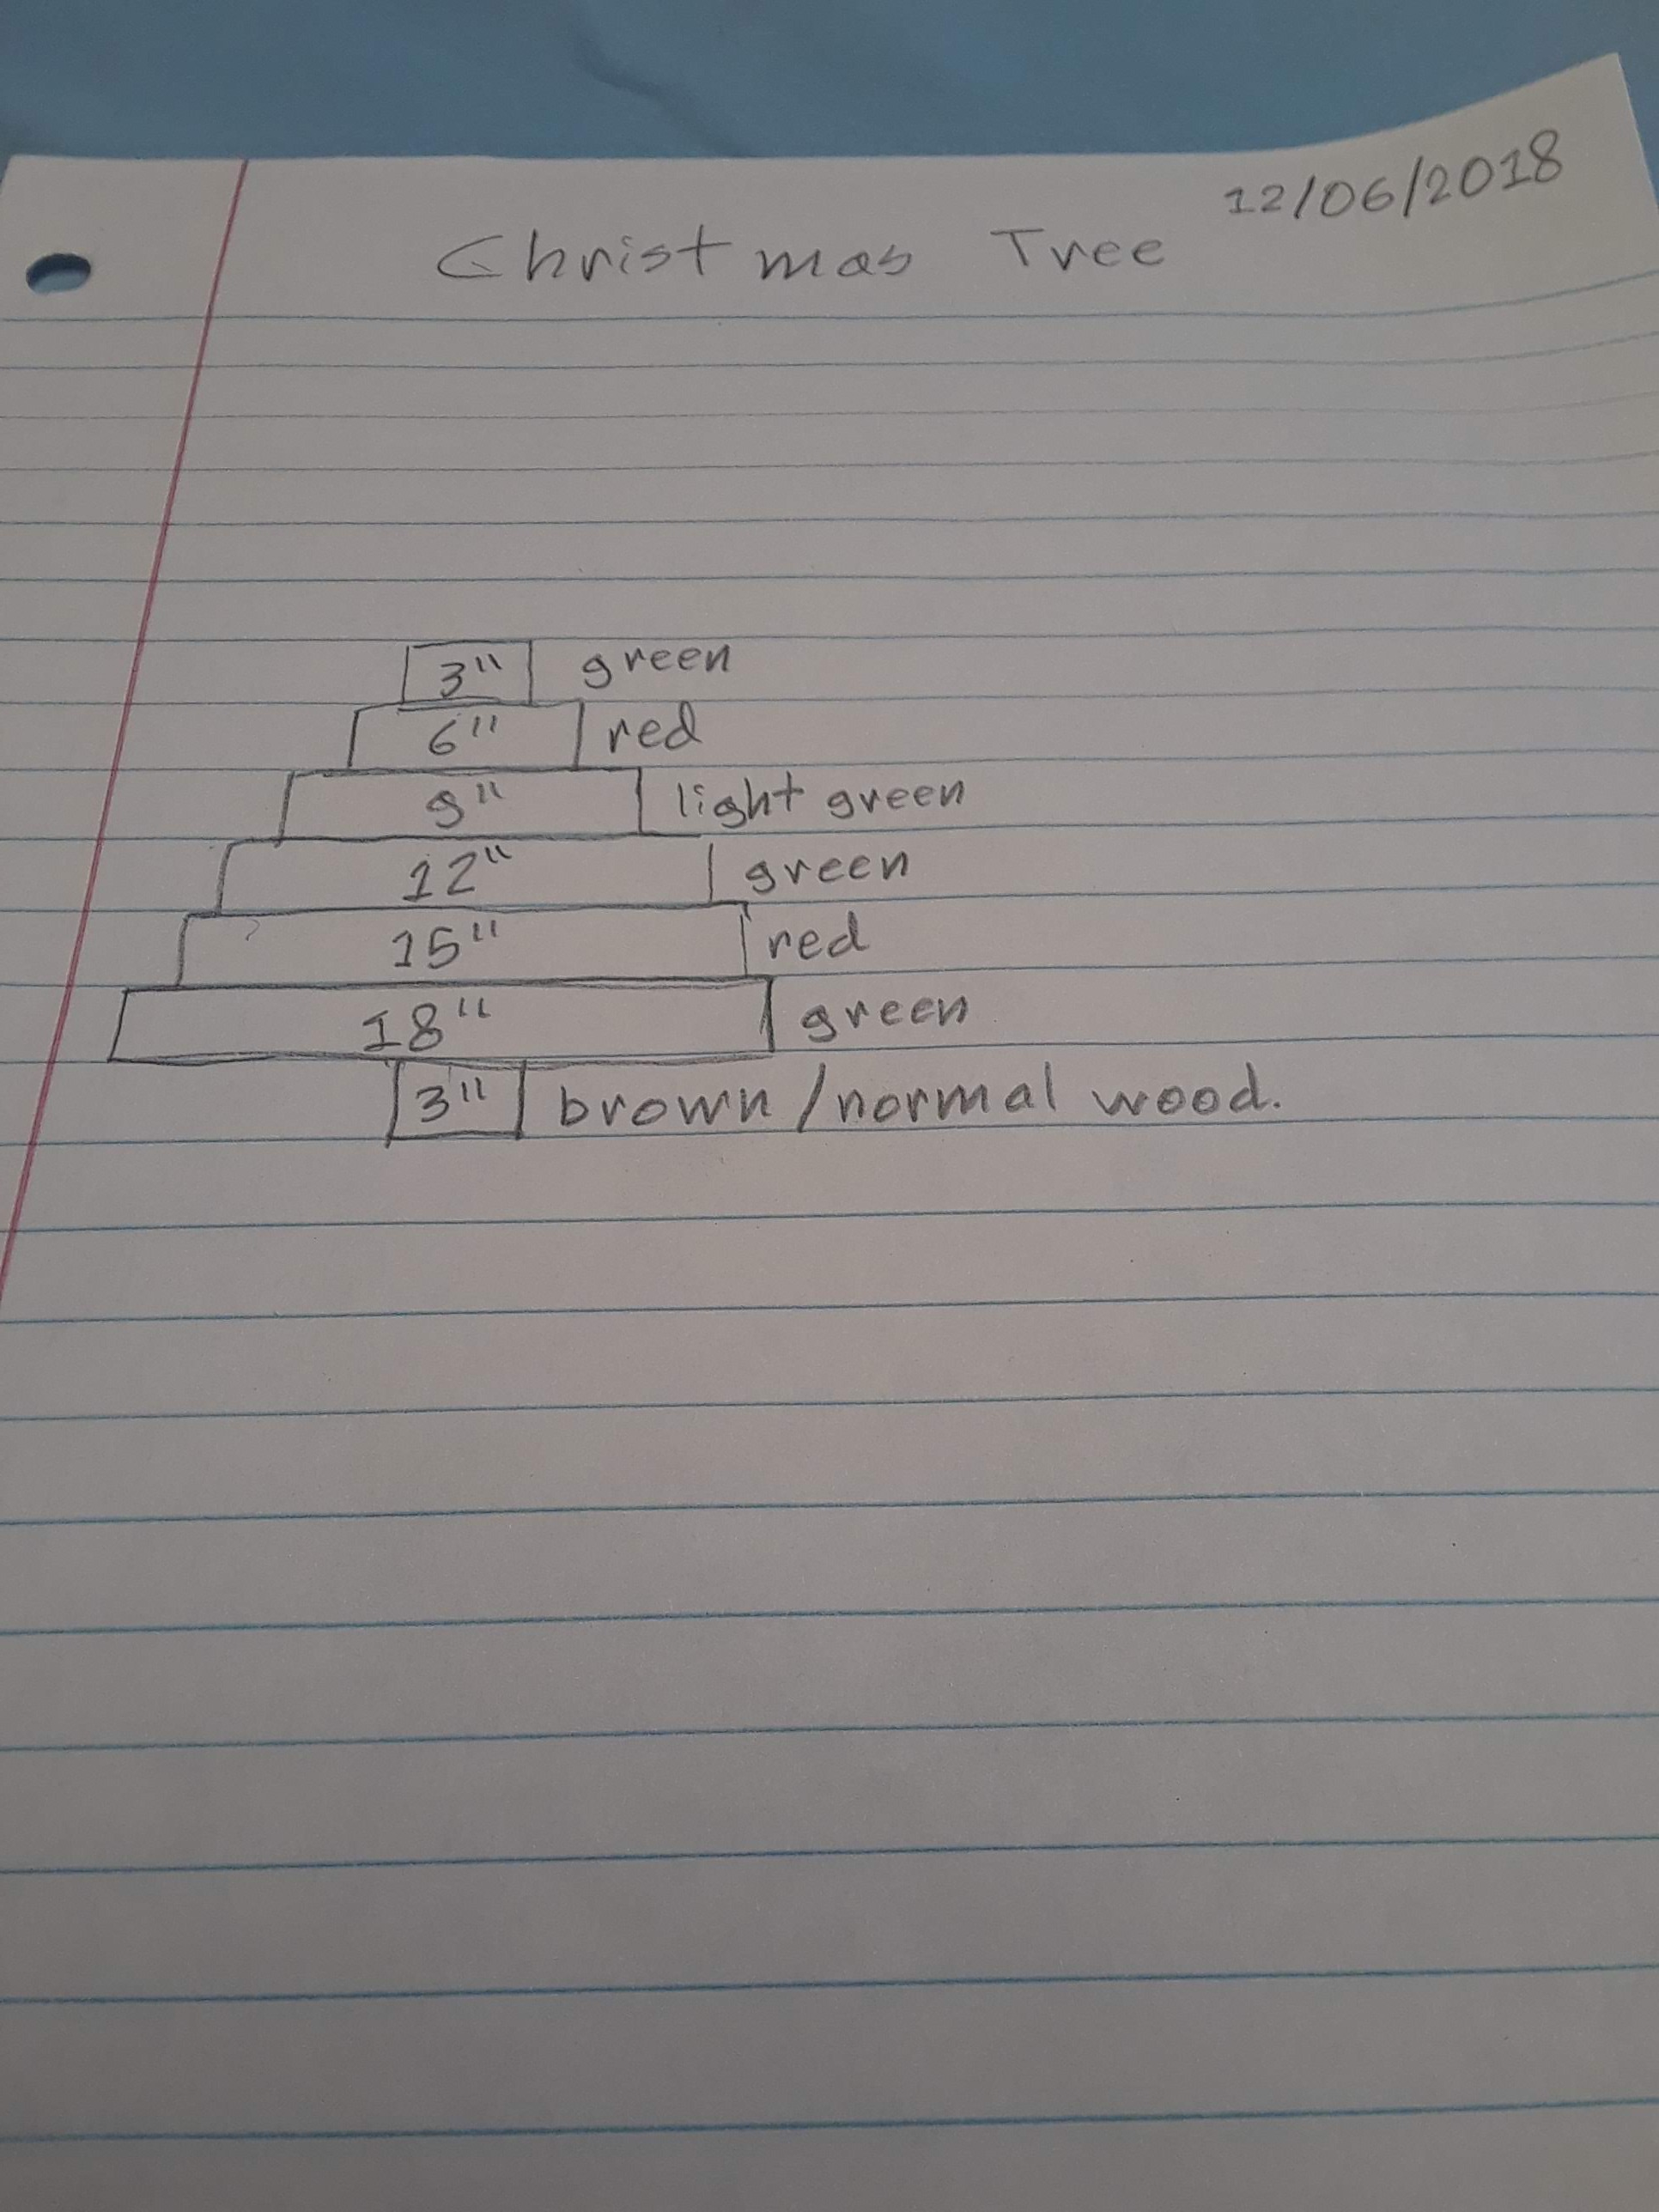 12/06/2018
Christmas Tree
3" green
6" red
9" light green
12" green
15" red
18" green
3" brown/normal wood.